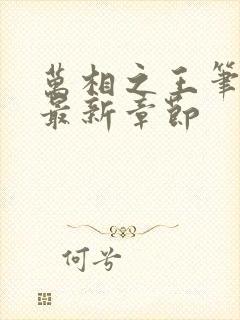 萬相之王筆
最新章節
何兮